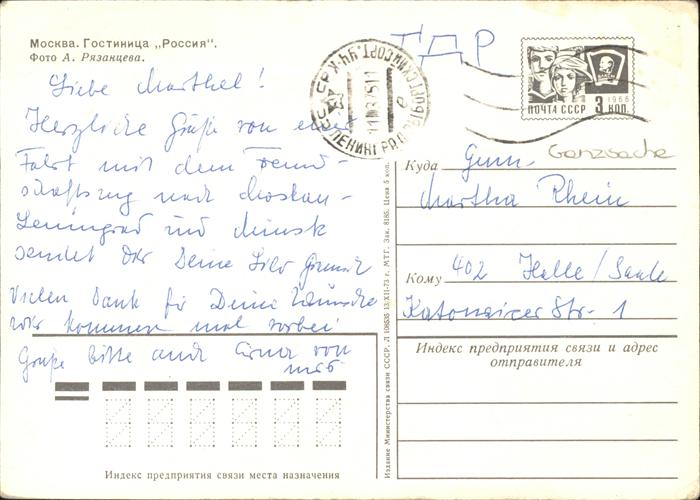 Москва. Гостиница „Россия".
Фото А. Рязанцева.
Liebe Marthel!
Herzliche Grüße von einer
Fahrt mit dem Freund-
schaftszug nach Moskau-
Leningrad und Minsk
sendet Dir Deine
Vielen Dank für Deine Wünsche
wir kommen mal vorbei
Grüße bitte auch Erna von
mir
ГДР
СССР
ЛЕНИНГРАД
ПОЧТА СССР
1966
3 КОП.
Ganzsache
Куда
Martha Rhein
Кому 402 Halle/Saale
Katowicer Str. 1
Индекс предприятия связи и адрес
отправителя
Издание Министерства связи СССР. Л 106535 13/XII-73 г. МТГ. Зак. 8185. Цена 5 коп.
Индекс предприятия связи места назначения